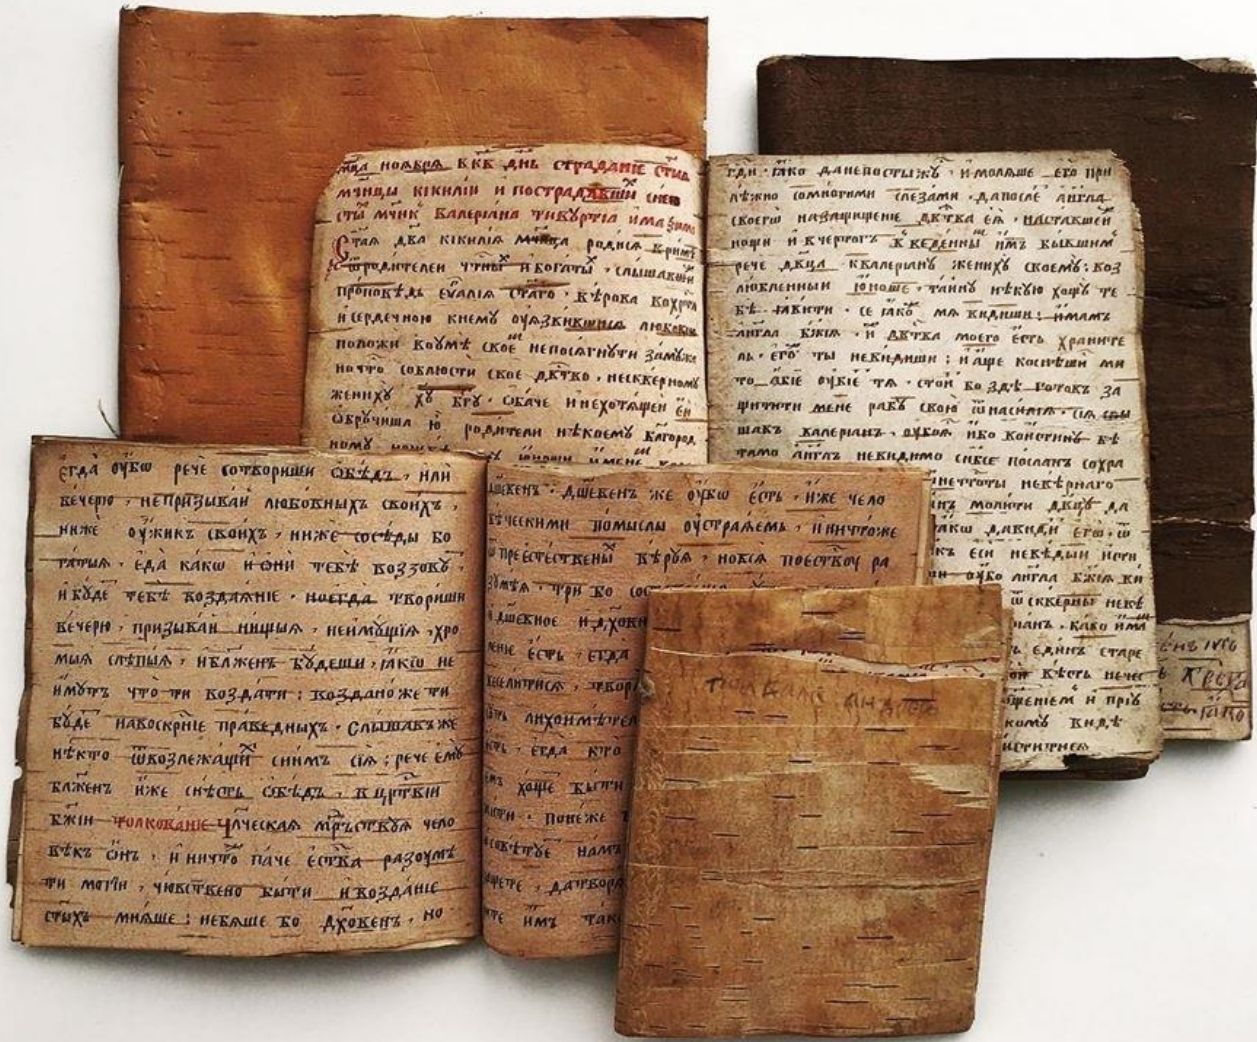 мц҃а ноѧбрѧ в҃ кв҃ дн҃ь страданїе ст҃ыѧ
мч҃нцы кікилїи и пострадавшиⷯ снею
ст҃ы мч҃нкⷯ валерїана тивꙋртїа имаѯима
Ст҃аѧ дв҃а кікилїѧ мч҃нца родисѧ в римѣ
ѿродителеи чт҃ныⷯ и богатыⷯ · слышавши
проповѣдь еѵⷢ҇алїѧ ст҃аго · вѣрова вохрⷭ҇та
и сердечною кнемꙋ оуѧзвившисѧ любовїю
положи воумѣ своеⷨ непосѧгнꙋти замꙋжъ
но что соблюсти свое дв҃тво , нескверномꙋ
женихꙋ хꙋ҃ бг҃ꙋ · ѻбаче инехотѧщеи еи
ѻбрꙋчиша ю родители нѣкоемꙋ благород
номꙋ
гдⷭ҇и · ꙗко данепостыжꙋⷭ҇ · имолѧше его при
лѣжно сомногими слезами · дапослетъ аг҃гла
своегѡ назащищение дв҃тва еѧ · наставшей
нощи и вчертогъ введенны имъ бывшимъ
рече дв҃ца · квалерїанꙋ женихꙋ своемꙋ : воз
любленныи юноше · тайнꙋ нѣкую хощꙋ те
бѣ ꙗвити · се ꙗкоⷤ мѧ видиши : имамъ
аг҃гла бж҃їѧ · и дв҃тва моего есть храните
ль · егоⷤ ты невидиши ; и аще коснеши ми
то абїе оубїе тѧ · стои бо здѣ готовъ за
щитити мене рабꙋ свою ѿнасилїѧ · сїѧ слы
шавъ валерїанъ · оубоѧ ибо воистинꙋ бѣ
тамо аг҃глъ невидимо снб҃се посланъ сохра
нечтоты невѣрнаго
нъ молити дв҃цꙋ да
ꙗкѡ давиди егѡ · ѿ
къ еси невѣдыи исти
оубо аг҃гла бж҃їѧ ви
ѿ скверны невѣ
анъ , како има
единъ старе
вѣсть нечес
щенїемъ и прїꙋ
комꙋ видѣ
иститисѧ
егда оубѡ рече сотвориши ѻбѣдъ , или
вечерю , непризываи любовныхъ своихъ ,
ниже оужикъ своихъ , ниже сосѣды бо
гатыѧ · еда какѡ и они тебѣ воззовꙋтъ ,
и бꙋде тебѣ воздаѧнїе · ноегда твориши
вечерю , призываи нищыѧ , неимꙋщїѧ , хро
мыѧ слѣпыѧ , иблаженъ бꙋдеши , ꙗкѡ не
имꙋтъ что ти воздати : воздано же ти
бꙋде навоскрⷭ҇нїе праведныхъ · слышавъ же
нѣкто ѿвозлежащиⷯ снимъ сїѧ ; рече емꙋ
блаженъ иже снѣсть ѻбѣдъ , в црⷭ҇твїи
бж҃їи толкованїе чл҃ческаѧ мрⷣъствꙋѧ чело
вѣкъ онъ , и ничто паче ества разоумѣ
ти могїи , чювствено быти ивозданїе
ст҃ыхъ мнѧше ; небѧше бо дх҃овенъ , но
дш҃евенъ · дш҃евенъ же оубѡ есть , иже чело
вѣческими помыслы оустраѧемь , и ничтоже
ѿ преестественыⷯ вѣрꙋѧ , новсѧ поествоу ра
зꙋмѣѧ , три бо сос
дш҃евное и дх҃овн
ленїе есть , егда
веселитисѧ , твори
лихоимѣтел
егда кто
хоще быти
понеже
совѣтꙋе намъ
щете , датвора
те имъ так